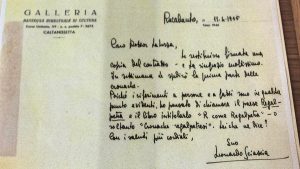 GALLERIA
RASSEGNA BIMESTRALE DI CULTURA
CALTANISSETTA
Racalmuto,
Caro professore Laterza,
Le restituisco firmata una
copia del contratto - e La ringrazio moltissimo.
In settimana Le spedirò la prima parte delle
cronache.
Poiché i riferimenti a persone e a fatti sono in qualche
punto evidenti, ho pensato di chiamare il paese Regal-
petra e il libro intitolarlo "
soltanto "Cronache regalpetresi". Lei che ne dice?
Con i saluti più cordiali,
Suo
Leonardo Sciascia